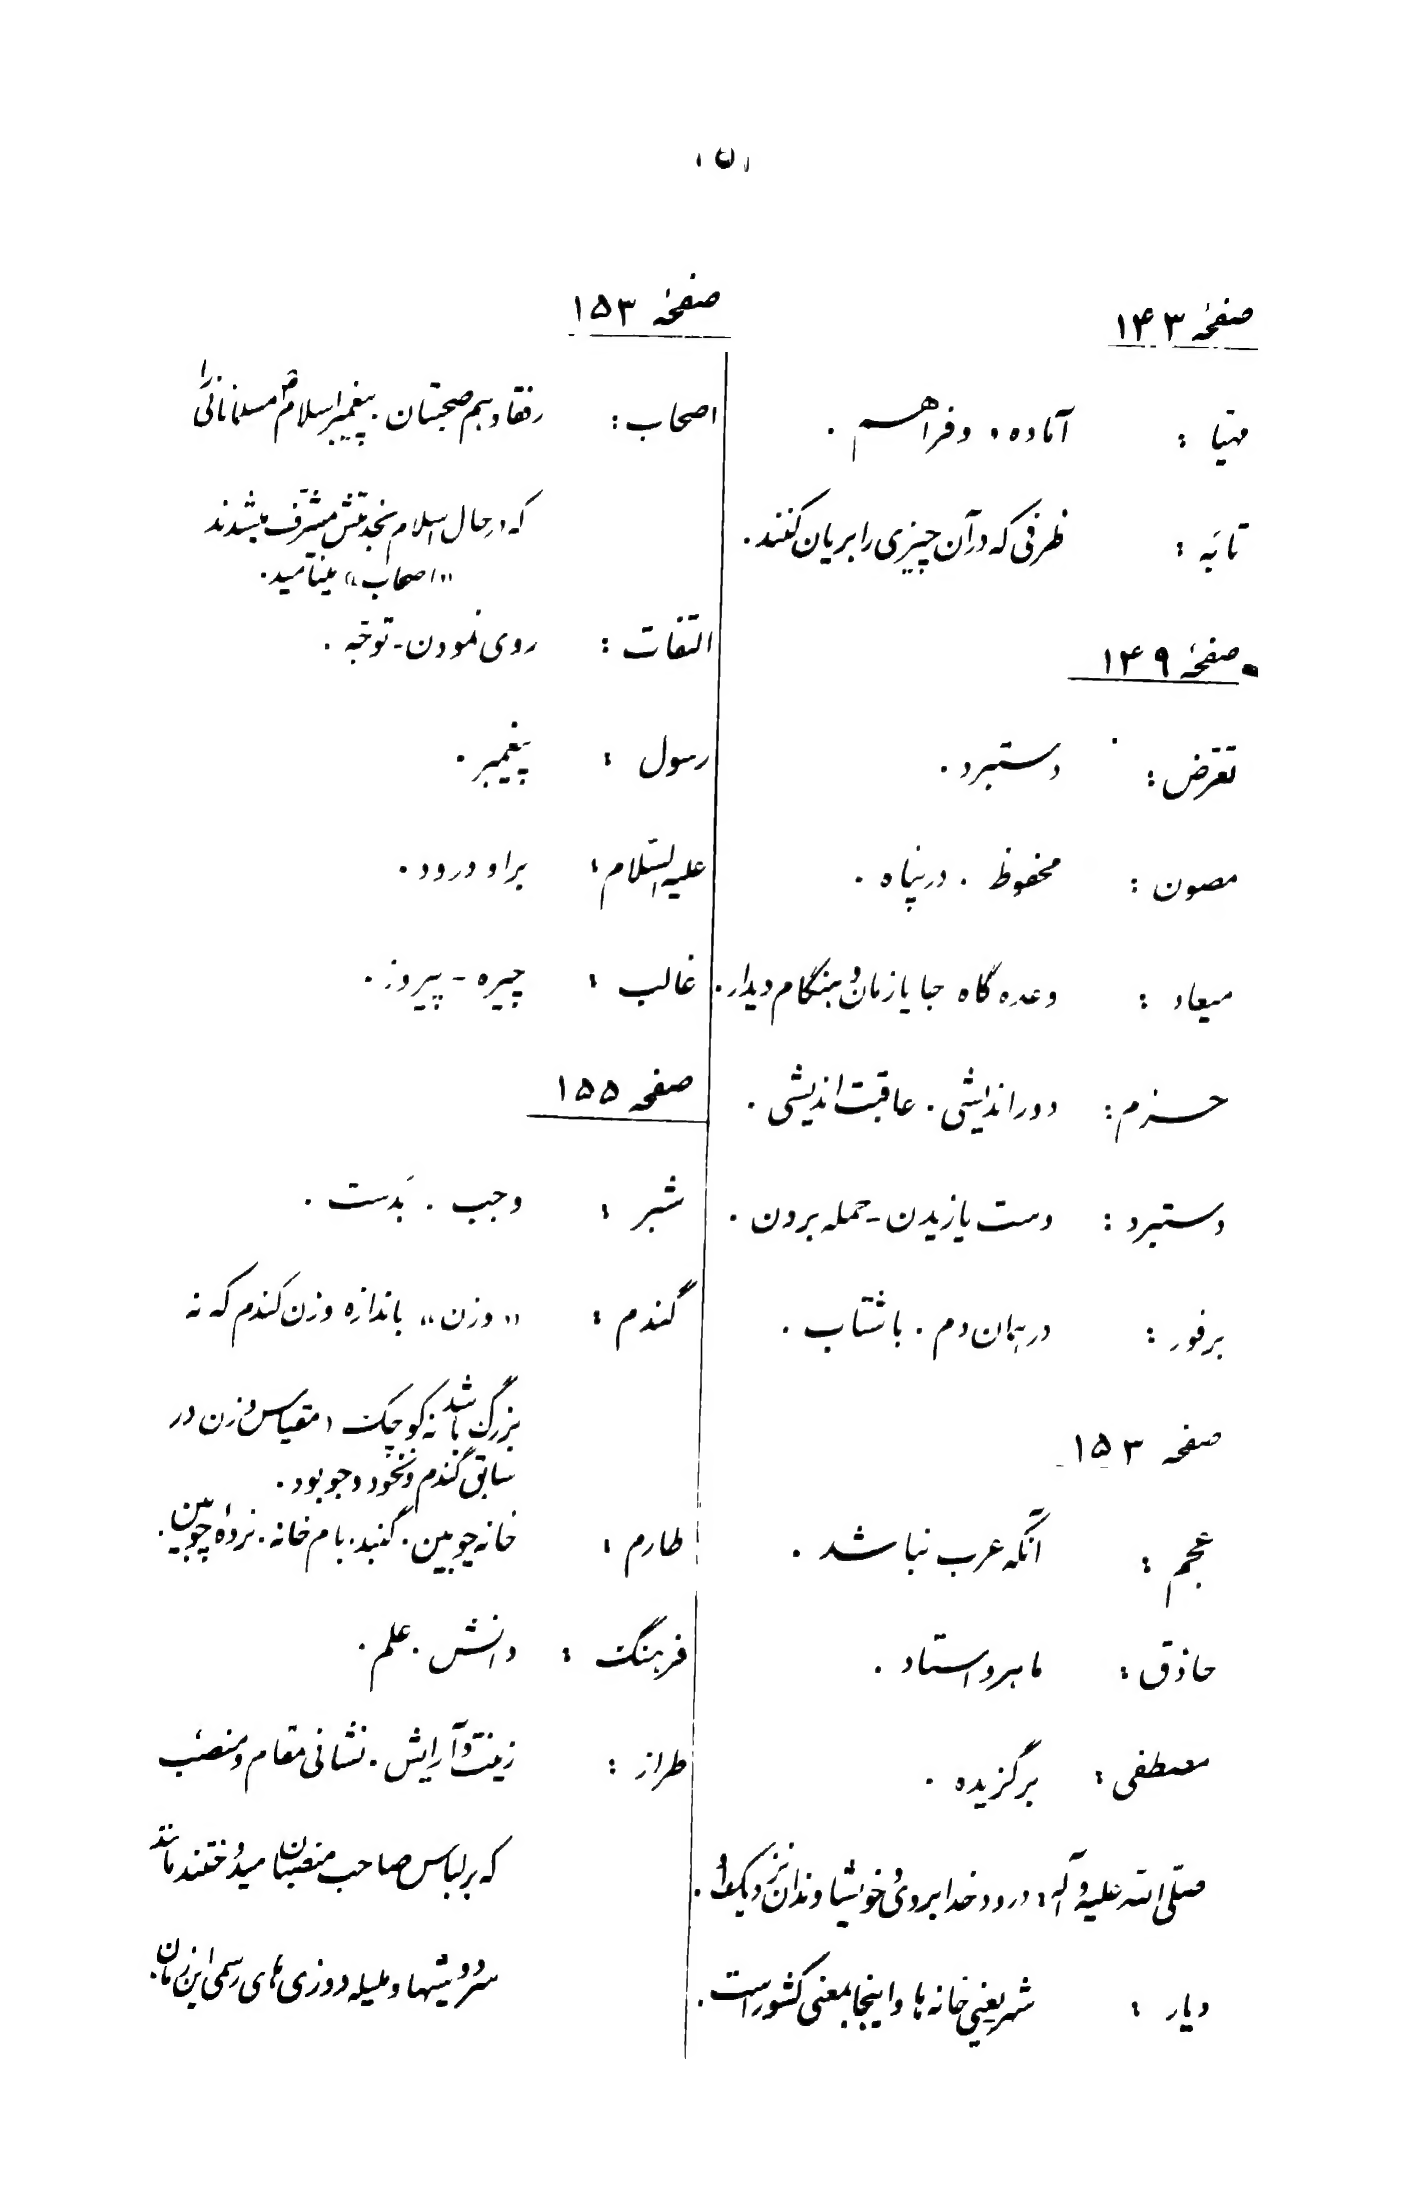 (۵)
صفحهٔ ۱۴۳
مهیّا : آماده و فراهم .
تابَه : ظرفی که در آن چیزی را بریان کنند .
صفحهٔ ۱۴۹
تعرّض : دستبرد .
مصون : محفوظ . در پناه .
میعاد : وعده گاه جا یا زمان و هنگام دیدار .
حزم : دوراندیشی . عاقبت اندیشی .
دستبرد : دست یازیدن - حمله بردن .
برفور : در همان دم . باشتاب .
صفحه ۱۵۳
عجم : آنکه عرب نباشد .
حاذق : ماهر و استاد .
مصطفی : برگزیده .
صلّی الله علیه و آله : درود خدا بر وی و خویشاوندان نزدیک او .
دیار : شهر یعنی خانه ها و اینجا بمعنی کشور است .
صفحهٔ ۱۵۳
اصحاب : رفقا و هم صحبتان . پیغمبر اسلام ص مسلمانانی را
که در حال اسلام بخدمتش مشرّف میشدند
«اصحاب» مینامید .
التفات : روی نمودن - توجّه .
رسول : پیغمبر .
علیه السّلام : بر او درود .
غالب : چیره - پیروز .
صفحه ۱۵۵
شبر : وجب . بَدست .
گندم : «وزن» باندازه وزن گندم که نه
بزرگ باشد نه کوچک ، مقیاس وزن در
سابق گندم و نخود و جو بود .
طارم : خانه چوبین . گنبد . بام خانه . نردهٔ چوبین .
فرهنگ : دانش . علم .
طراز : زینت و آرایش . نشانی مقام و منصب
که بر لباس صاحب منصبان میدوختند مانند
سردوشیها و ملیله دوزی های رسمی این زمان .